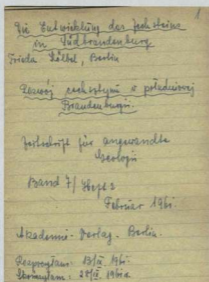 Die Entwicklung des Zechsteins
in Südbrandenburg
Frieda Kölbel, Berlin
Rozwój cechsztynu w południowej
Brandenburgii.
Zeitschrift für angewandte
Geologie
Band 7/ Heft 2
Februar 1961.
Akademie-Verlag. Berlin.
1961.